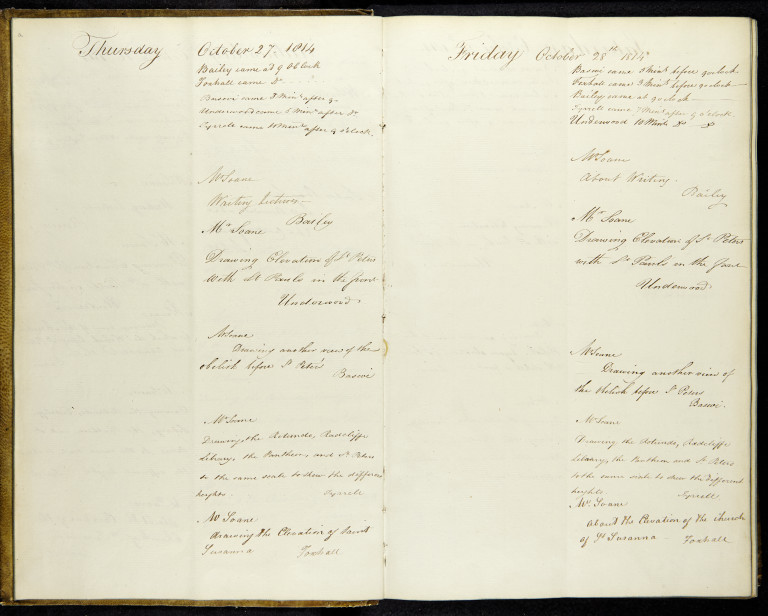 Thursday October 27 1814
Bailey came at 9 O'Clock
Foxhall came Do
Basevi came 3 Mints after 9
Underwood came 5 Mints after Do
Tyrrell came 10 Mints after 9 o'Clock
Mr Soane
Writing Lectures
Bailey
Mr Soane
Drawing Elevation of St Peters
with St Pauls in the front
Underwood
Mr Soane
Drawing another view of the
obelisk before St Peter's
Basevi
Mr Soane
Drawing the Rotunda, Radcliffe
Library, the Pantheon, and St Peters
to the same scale to shew the different
heights.
Tyrrell
Mr Soane
drawing the Elevation of Saint
Susanna Foxhall
Friday October 28th 1814
Basevi came 5 Mints before 9 o clock
Foxhall came 3 Mints before 9 o clock
Bailey came at 9 o clock
Tyrrell came 7 Mints after 9 o'Clock
Underwood 10 Mints Do Do
Mr Soane
About Writing.
Bailey
Mr Soane
Drawing Elevation of St Peters
with St Pauls in the front
Underwood
Mr Soane
Drawing another view of
the obelisk before St Peters
Basevi.
Mr Soane
Drawing the Rotunda, Radcliffe
Library, the Pantheon and St Peters
to the same scale to shew the different
heights.
Tyrrell
Mr Soane
about the Elevation of the church
of St Susanna Foxhall